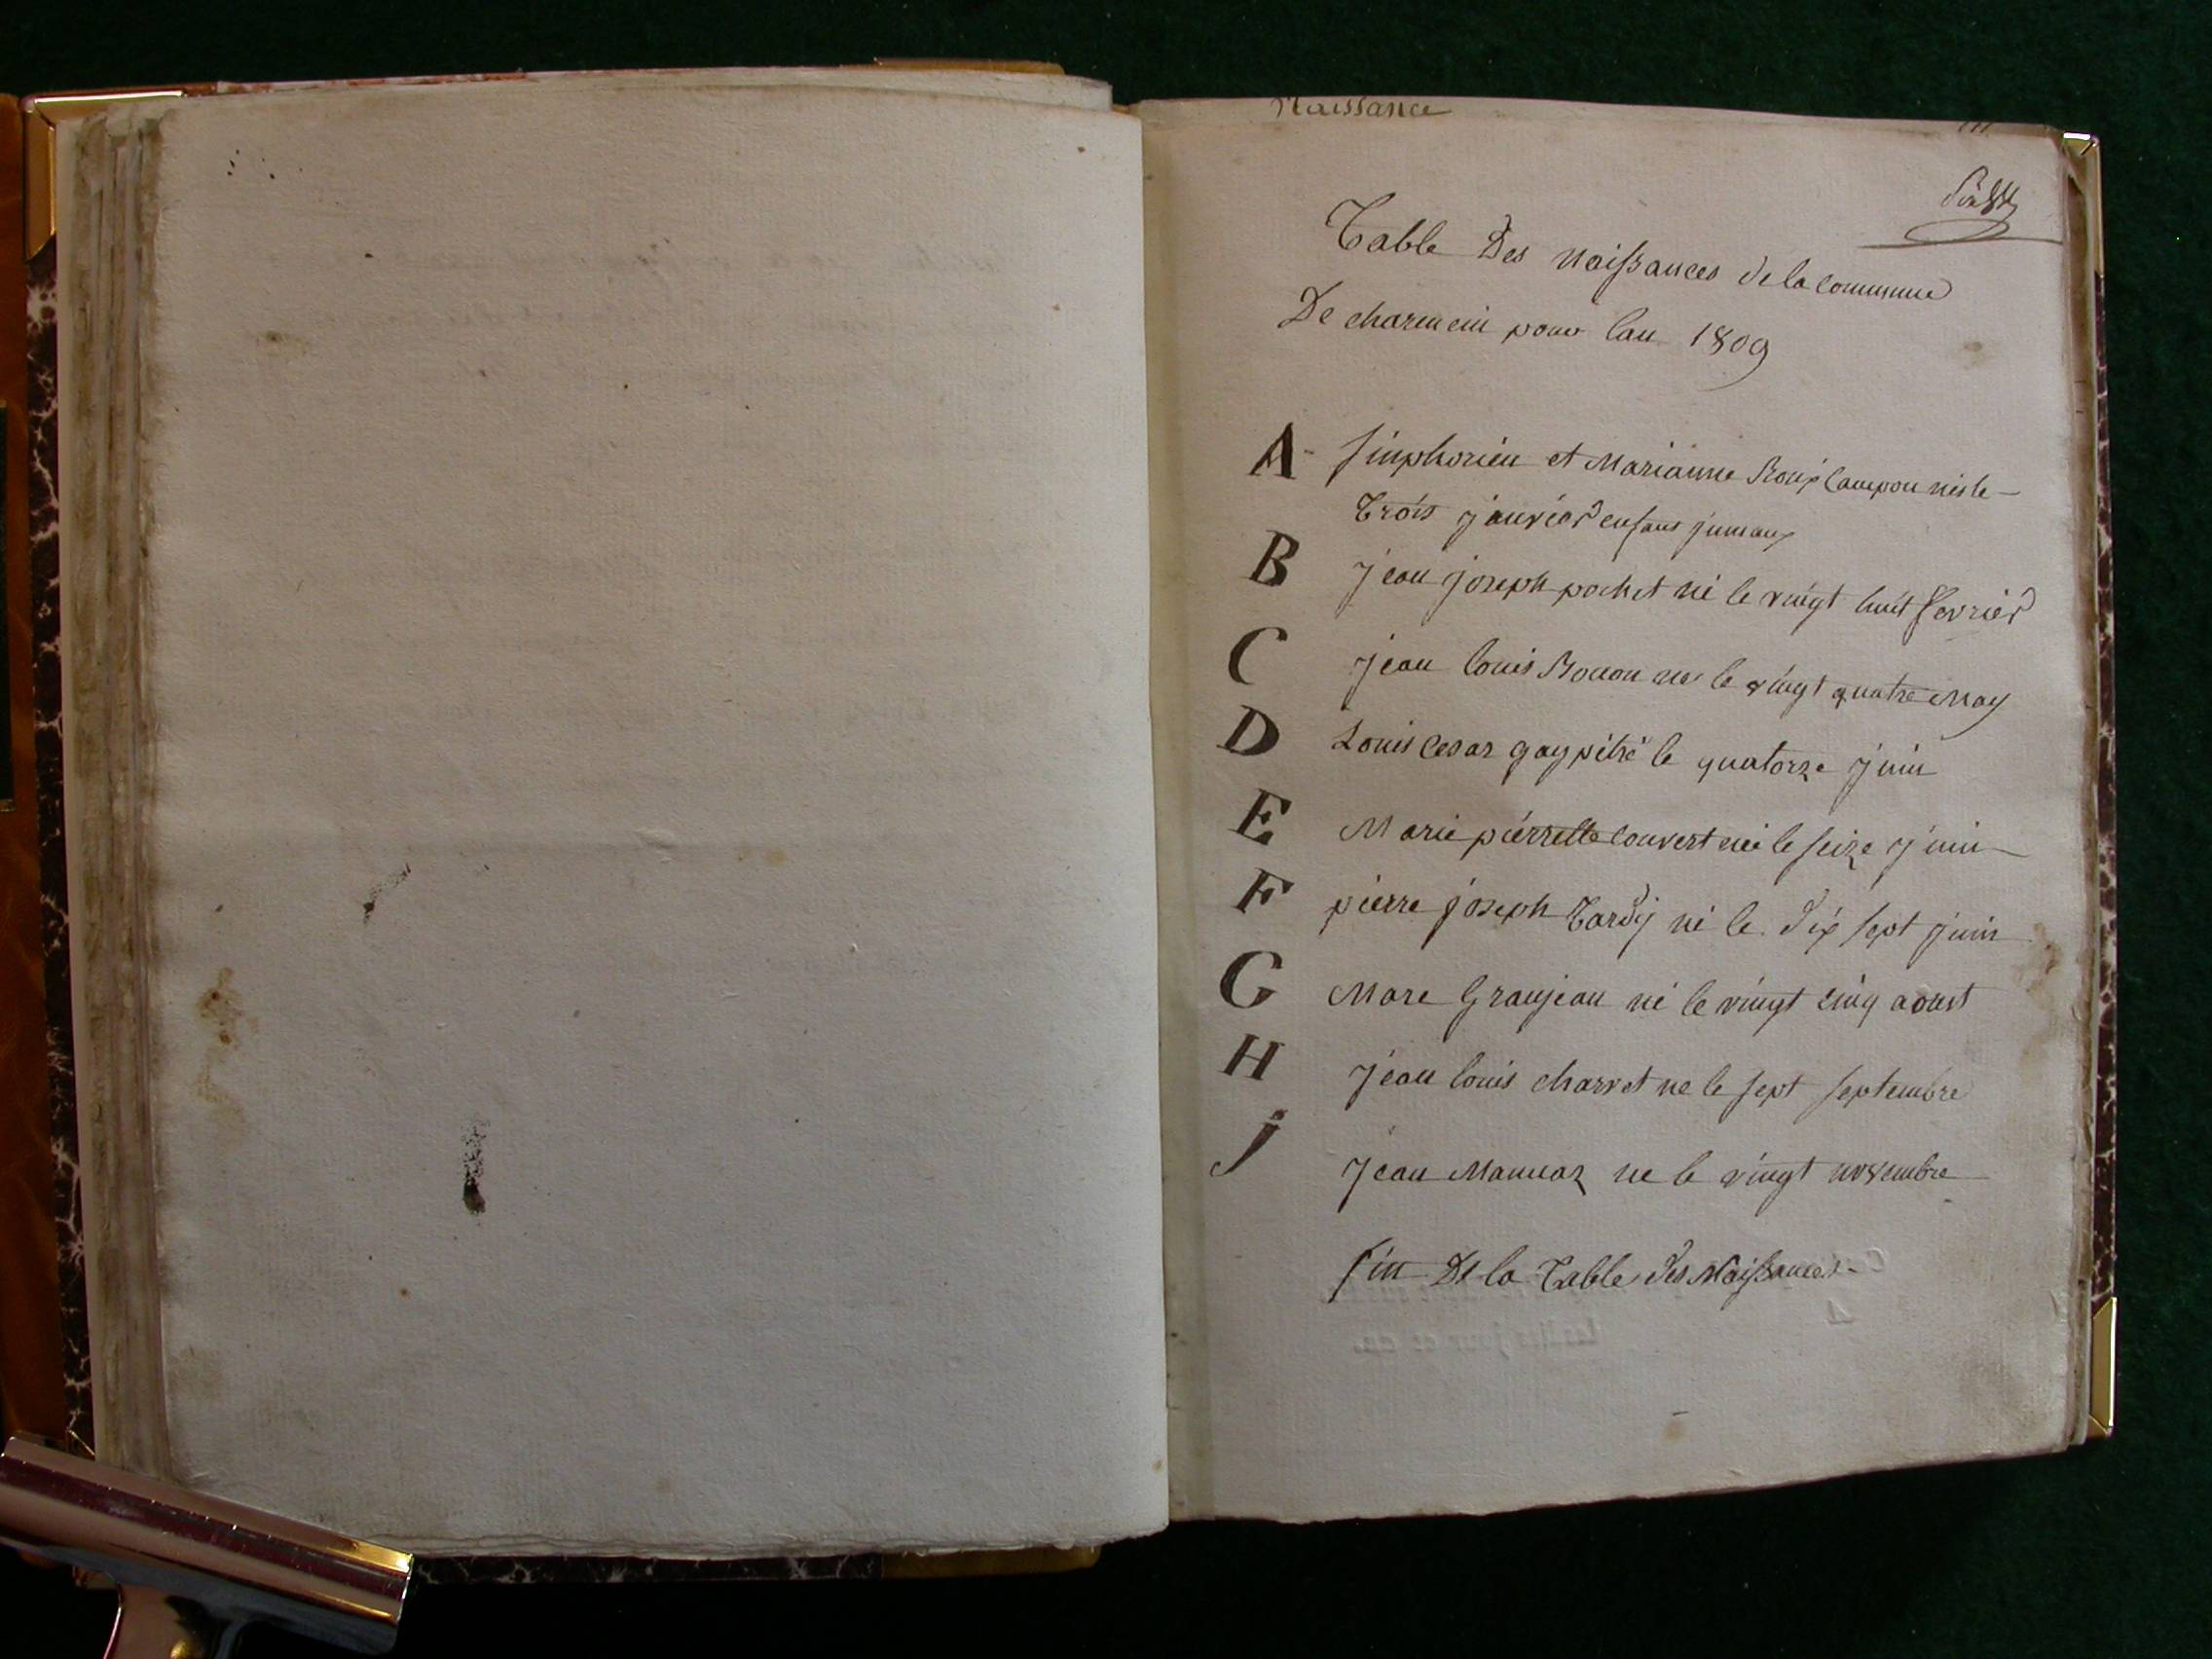 Naissance
Table Des naissances de la commune
De charmein pour lan 1809
A Sinphorien et Marianne Roux Campon nés le
Trois janvier enfans jumaux
B jean joseph pochet né le vingt huit fevrier
C jean louis Bonon né le vingt quatre May
D Louis Cesar gaypitré le quatorze juin
E Marie pierrette couvert née le seize juin
F pierre joseph Tardÿ né le dix sept juin
G Marc Granjean né le vingt cinq aoust
H jean louis charvet né le sept septembre
J jean Mannaz né le vingt novembre
fin De la Table des Naissances